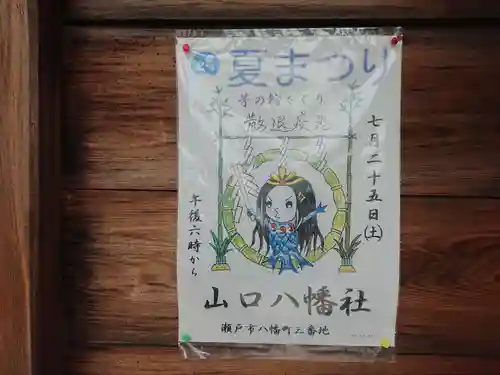 夏まつり
茅の輪くぐり
散退疫恐
七月二十五日(土)
午後六時から
山口八幡社
瀬戸市八幡町三番地